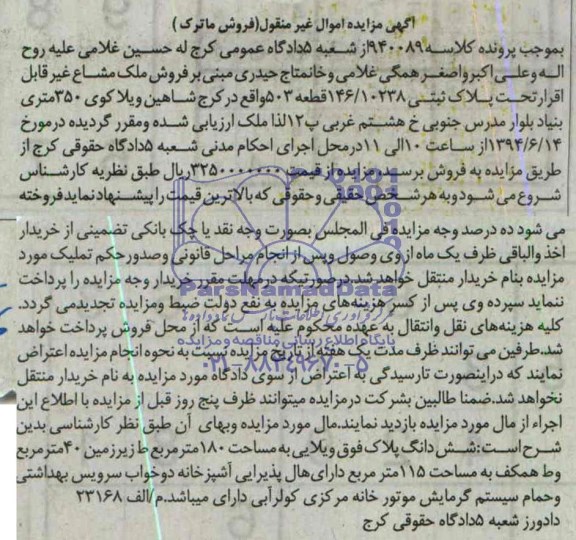 آگهی مزایده اموال غیر منقول(فروش ماترک )
بموجب پرونده کلاسه ۹۴۰۰۸۹از شعبه ۵دادگاه عمومی کرج له حسین غلامی علیه روح
اله وعلی اکبر واصغر همگی غلامی و خانمتاج حیدری مبنی بر فروش ملک مشاع غیر قابل
اقرار تحت پلاک ثبتی ۱۴۶/۱۰۲۳۸قطعه ۵۰۳واقع در کرج شاهین ویلا کوی ۳۵۰متری
بنیاد بلوار مدرس جنوبی خ هشتم غربی پ۱۲لذا ملک ارزیابی شده ومقرر گردیده درمورخ
۱۳۹۴/۶/۱۴از ساعت ۱۰الی ۱۱درمحل اجرای احکام مدنی شعبه ۵دادگاه حقوقی کرج از
طریق مزایده به فروش برسد.مزایده از قیمت ۳۲۵۰۰۰۰۰۰۰ریال طبق نظریه کارشناس
شروع می شود وبه هر شخص حقیقی وحقوقی که بالاترین قیمت را پیشنهاد نماید فروخته
می شود ده درصد وجه مزایده فی المجلس بصورت وجه نقد یا چک بانکی تضمینی از خریدار
اخذ والباقی ظرف یک ماه از وی وصول وپس از انجام مراحل قانونی وصدور حکم تملیک مورد
مزایده بنام خریدار منتقل خواهد شد.درصورتیکه درمهلت مقرر خریدار وجه مزایده را پرداخت
ننماید سپرده وی پس از کسر هزینه‌های مزایده به نفع دولت ضبط ومزایده تجدیدمی گردد.
کلیه هزینه‌های نقل وانتقال به عهده محکوم علیه است که از محل فروش پرداخت خواهد
شد.طرفین می توانند ظرف مدت یک هفته از تاریخ مزایده نسبت به نحوه انجام مزایده اعتراض
نمایند که دراینصورت تارسیدگی به اعتراض از سوی دادگاه مورد مزایده به نام خریدار منتقل
نخواهد شد.ضمنا طالبین بشرکت درمزایده میتوانند ظرف پنج روز قبل از مزایده با اطلاع این
اجراء از مال مورد مزایده بازدید نمایند.مال مورد مزایده وبهای آن طبق نظر کارشناسی بدین
شرح است:شش دانگ پلاک فوق ویلایی به مساحت ۱۸۰مترمربع ط زیرزمین ۴۰مترمربع
وط همکف به مساحت ۱۱۵متر مربع دارای هال پذیرایی آشپزخانه دوخواب سرویس بهداشتی
وحمام سیستم گرمایش موتور خانه مرکزی کولرآبی دارای میباشد.م/الف ۲۳۱۶۸
دادورز شعبه ۵دادگاه حقوقی کرج
ParsNamadData
پایگاه اطلاع رسانی مناقصه و مزایده
۰۲۱-۸۸۳۴۹۶۷۰-۵